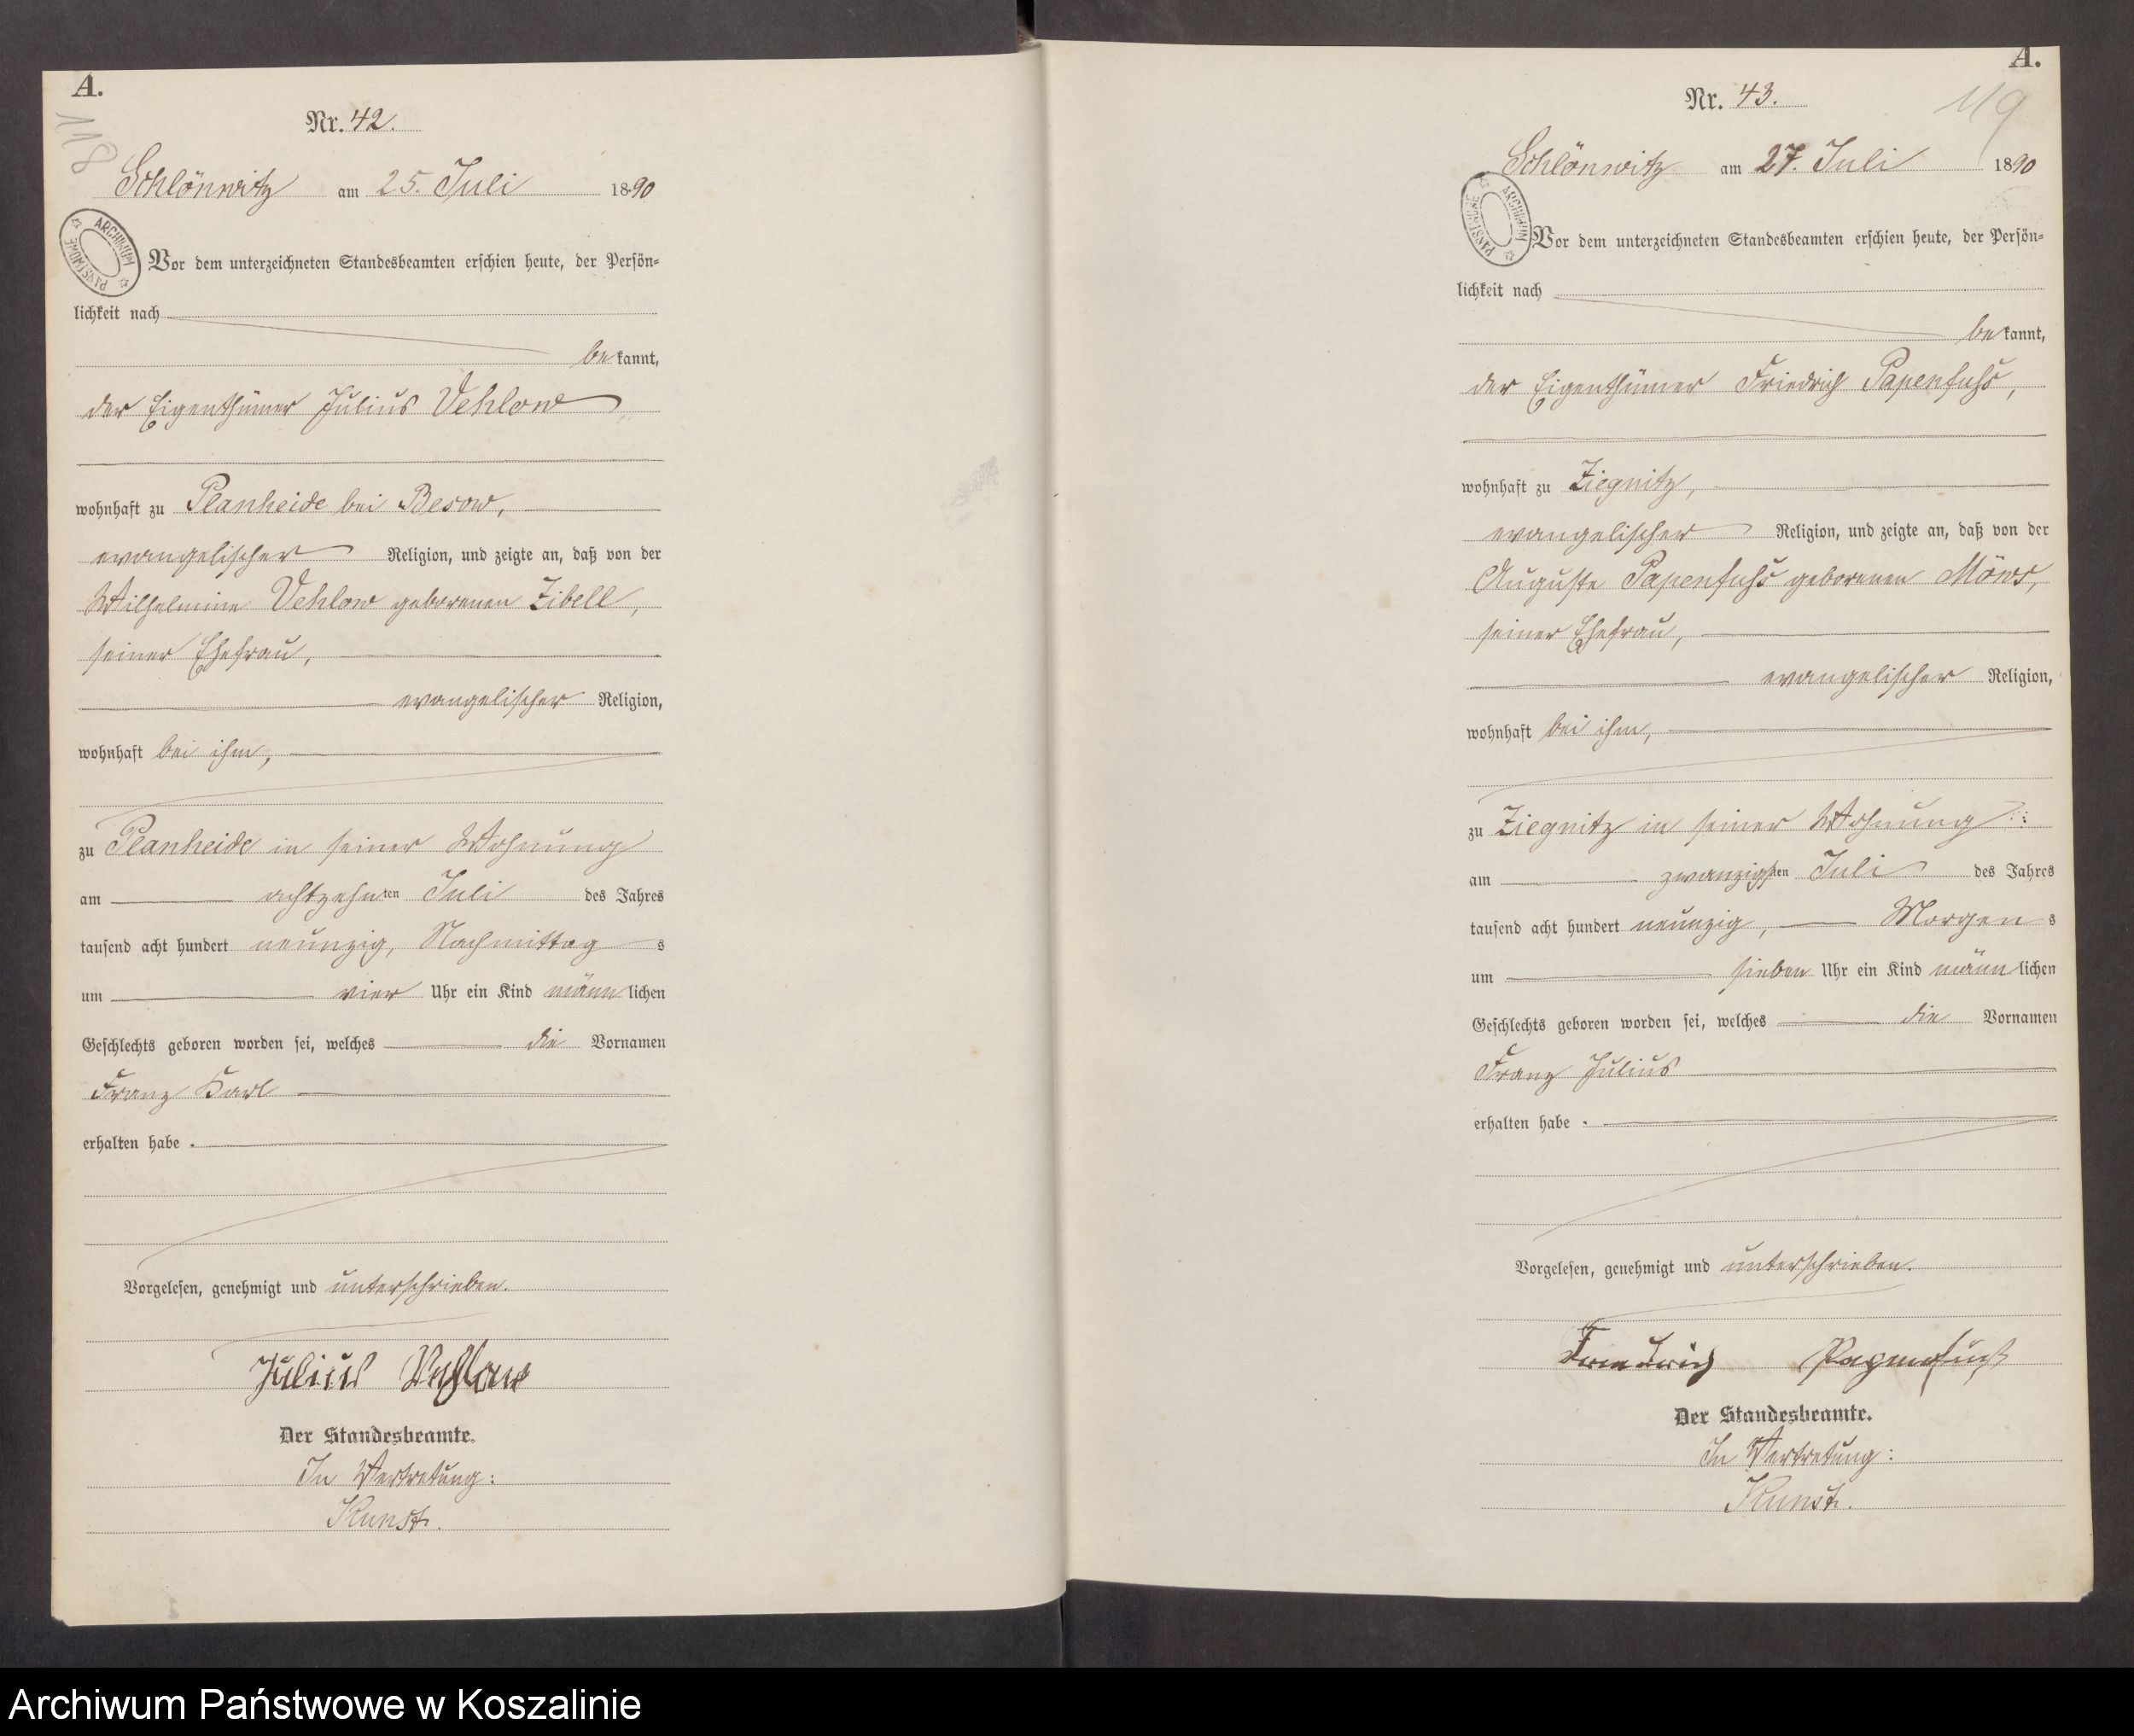 A.
118
Nr. 42.
Schlönwitz am 25. Juli 1890
ARCHIWUM PAŃSTWOWE
Vor dem unterzeichneten Standesbeamten erschien heute, der Persön=
lichkeit nach
bekannt,
der Eigenthümer Julius Vehlow,
wohnhaft zu Planheide bei Besow,
evangelischer Religion, und zeigte an, daß von der
Wilhelmine Vehlow geborenen Zibell,
seiner Ehefrau,
evangelischer Religion,
wohnhaft bei ihm,
zu Planheide in seiner Wohnung
am achtzehnten Juli des Jahres
tausend acht hundert neunzig, Nachmittags
um vier Uhr ein Kind männlichen
Geschlechts geboren worden sei, welches die Vornamen
Franz Karl
erhalten habe.
Vorgelesen, genehmigt und unterschrieben.
Julius Vehlow
Der Standesbeamte.
In Vertretung:
Kunst.
A.
119
Nr. 43.
Schlönwitz am 27. Juli 1890
ARCHIWUM PAŃSTWOWE
Vor dem unterzeichneten Standesbeamten erschien heute, der Persön=
lichkeit nach
bekannt,
der Eigenthümer Friedrich Papenfuhs,
wohnhaft zu Ziegnitz,
evangelischer Religion, und zeigte an, daß von der
Auguste Papenfuhs geborenen Möws,
seiner Ehefrau,
evangelischer Religion,
wohnhaft bei ihm,
zu Ziegnitz in seiner Wohnung
am zwanzigsten Juli des Jahres
tausend acht hundert neunzig, Morgens
um sieben Uhr ein Kind männlichen
Geschlechts geboren worden sei, welches die Vornamen
Franz Julius
erhalten habe.
Vorgelesen, genehmigt und unterschrieben.
Friedrich Papenfuß
Der Standesbeamte.
In Vertretung:
Kunst.
Archiwum Państwowe w Koszalinie